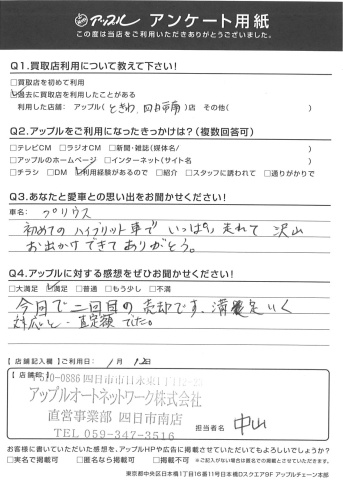 アップル アンケート用紙
この度は当店をご利用いただきありがとうございました。
Q1.買取店利用について教えて下さい!
□買取店を初めて利用
☑過去に買取店を利用したことがある
利用した店舗: アップル(ときわ、四日市南)店 その他( )
Q2.アップルをご利用になったきっかけは?(複数回答可)
□テレビCM □ラジオCM □新聞・雑誌(媒体名/ )
□アップルのホームページ □インターネット(サイト名 )
□チラシ □DM ☑利用経験があるので □紹介 □スタッフに誘われて □通りがかりで
Q3.あなたと愛車との思い出をお聞かせください!
車名: プリウス
初めてのハイブリット車でいっぱい走れて沢山
お出かけできてありがとう。
Q4.アップルに対する感想をぜひお聞かせください!
□大満足 ☑満足 □普通 □もう少し □不満
今回で二回目の売却です。満足いく
対応と、査定額でした。
【店舗記入欄】【ご利用日: 1月12日
【店舗印】
〒510-0886 四日市市日永東
アップルオートネットワーク株式会社
直営事業部 四日市南店
TEL 059-347-3516
担当者名 中山
お客様に書いていただいた感想を、アップルHPや広告に掲載させていただいてもよろしいでしょうか?
□実名で掲載可 □匿名なら掲載可 □掲載不可 ※ご記入がない場合は匿名での掲載とさせていただきます。
東京都中央区日本橋1丁目16番11号日本橋Dスクエア9F アップルチェーン本部